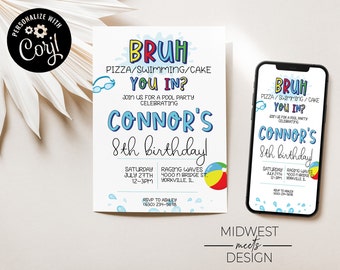 PERSONALIZE WITH
Corjl
BRUH
PIZZA/SWIMMING/CAKE
YOU IN?
JOIN US FOR A POOL PARTY
CELEBRATING
CONNOR'S
8th birthday!
SATURDAY
JULY 27TH
12-3PM
RAGING WAVES
4000 N BRIDGE ST.
YORKVILLE, IL
RSVP TO ASHLEY
BRUH
PIZZA/SWIMMING/CAKE
YOU IN?
JOIN US FOR A POOL PARTY
CELEBRATING
CONNOR'S
8th birthday!
SATURDAY
JULY 27TH
12-3PM
RAGING WAVES
4000 N BRIDGE ST.
YORKVILLE, IL
RSVP TO ASHLEY
MIDWEST
meets
DESIGN